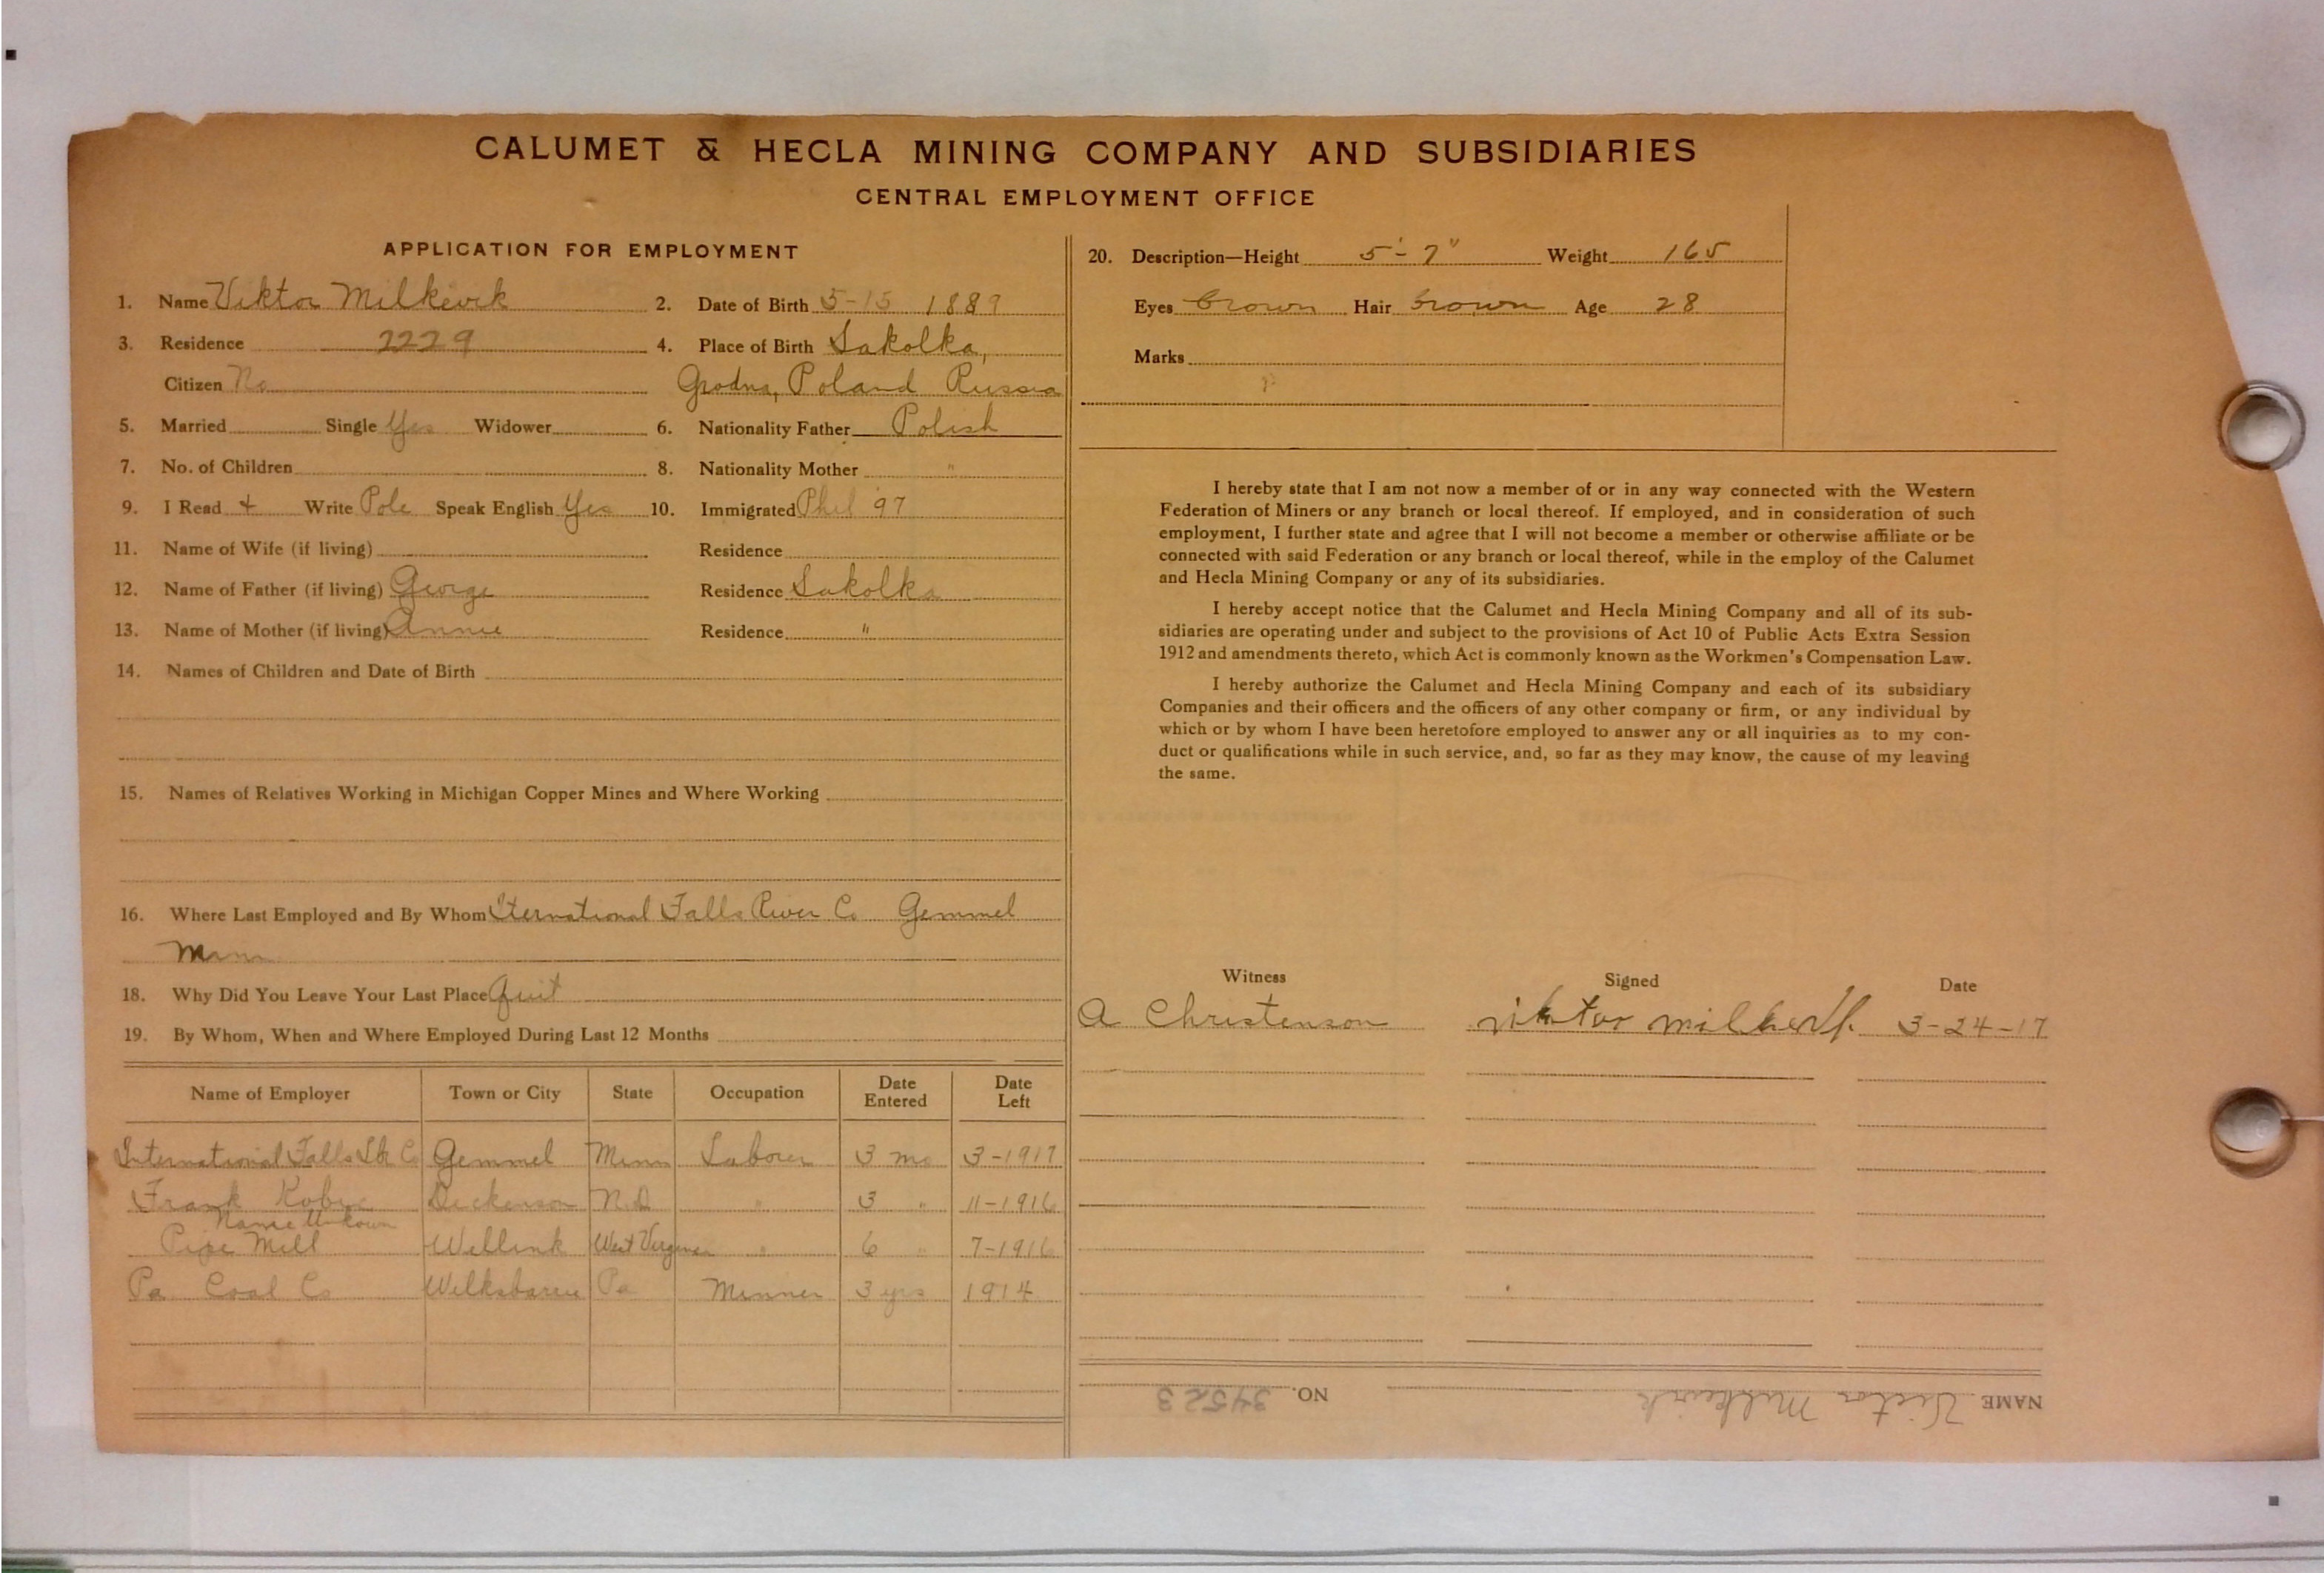 CALUMET & HECLA MINING COMPANY AND SUBSIDIARIES
CENTRAL EMPLOYMENT OFFICE
APPLICATION FOR EMPLOYMENT
1. Name Viktor Milkevik 2. Date of Birth 5-15 1889
3. Residence 2229 4. Place of Birth Sakolka,
Citizen No Grodna, Poland Russia
5. Married Single Yes Widower 6. Nationality Father Polish
7. No. of Children 8. Nationality Mother "
9. I Read + Write Pole Speak English Yes 10. Immigrated Phil 97
11. Name of Wife (if living) Residence
12. Name of Father (if living) George Residence Sakolka
13. Name of Mother (if living) Annie Residence "
14. Names of Children and Date of Birth
15. Names of Relatives Working in Michigan Copper Mines and Where Working
16. Where Last Employed and By Whom Iternational Falls River Co Gemmel
Minn
18. Why Did You Leave Your Last Place Quit
19. By Whom, When and Where Employed During Last 12 Months
Name of Employer Town or City State Occupation Date Entered Date Left
International Falls Co Gemmel Minn Laborer 3 mo 3-1917
Frank Dickenson N.D. " 3 " 11-1916
Name Unkown
Pipe Mill Wellink West Virginia " 6 " 7-1916
Pa Coal Co Wilksbarre Pa Minner 3 yrs 1914
20. Description—Height 5'-7" Weight 165
Eyes Brown Hair Brown Age 28
Marks
I hereby state that I am not now a member of or in any way connected with the Western
Federation of Miners or any branch or local thereof. If employed, and in consideration of such
employment, I further state and agree that I will not become a member or otherwise affiliate or be
connected with said Federation or any branch or local thereof, while in the employ of the Calumet
and Hecla Mining Company or any of its subsidiaries.
I hereby accept notice that the Calumet and Hecla Mining Company and all of its sub-
sidiaries are operating under and subject to the provisions of Act 10 of Public Acts Extra Session
1912 and amendments thereto, which Act is commonly known as the Workmen's Compensation Law.
I hereby authorize the Calumet and Hecla Mining Company and each of its subsidiary
Companies and their officers and the officers of any other company or firm, or any individual by
which or by whom I have been heretofore employed to answer any or all inquiries as to my con-
duct or qualifications while in such service, and, so far as they may know, the cause of my leaving
the same.
Witness Signed Date
A Christenson viktor 3-24-17
NAME Victor Milkevik NO. 34523